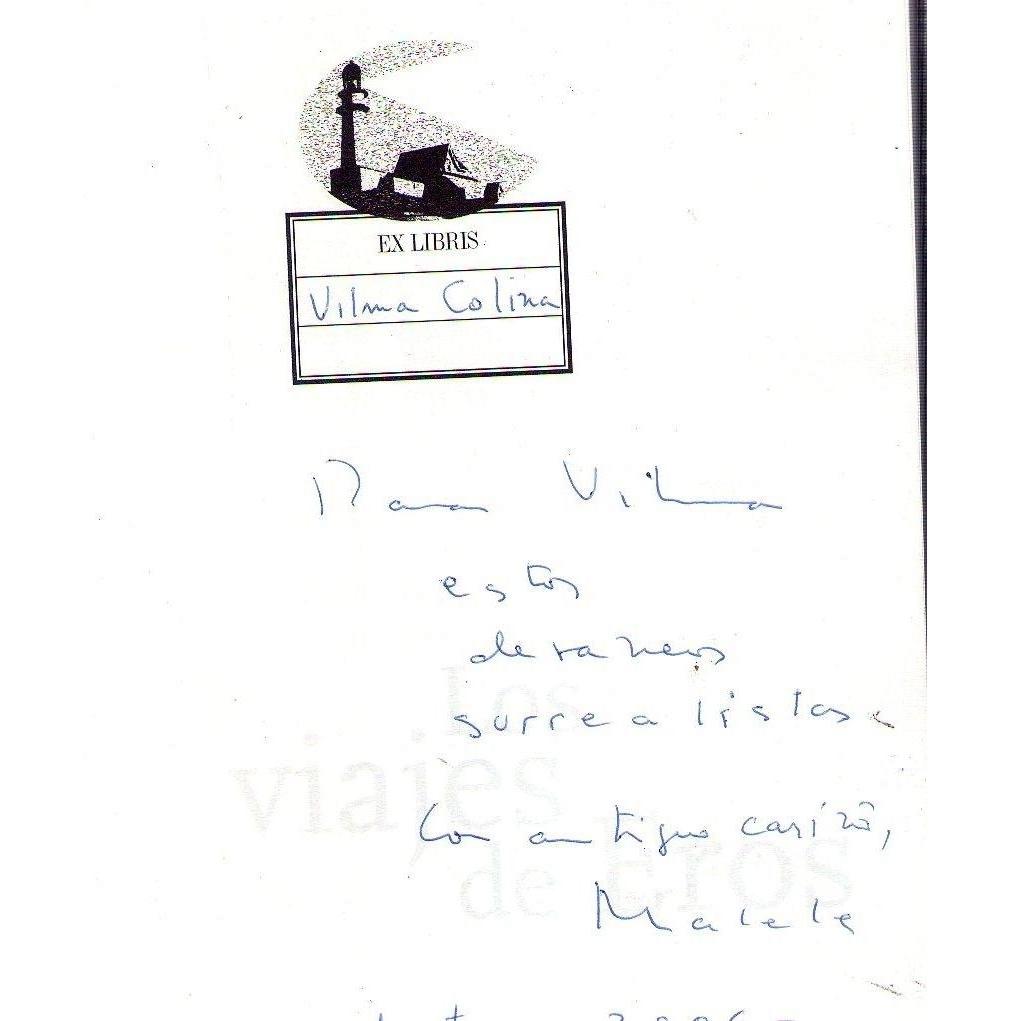 EX LIBRIS
Vilma Colina
Para Vilma
estos
devaneos
surrealistas.
Con antiguo cariño,
Malele
Los
viajes
de eros